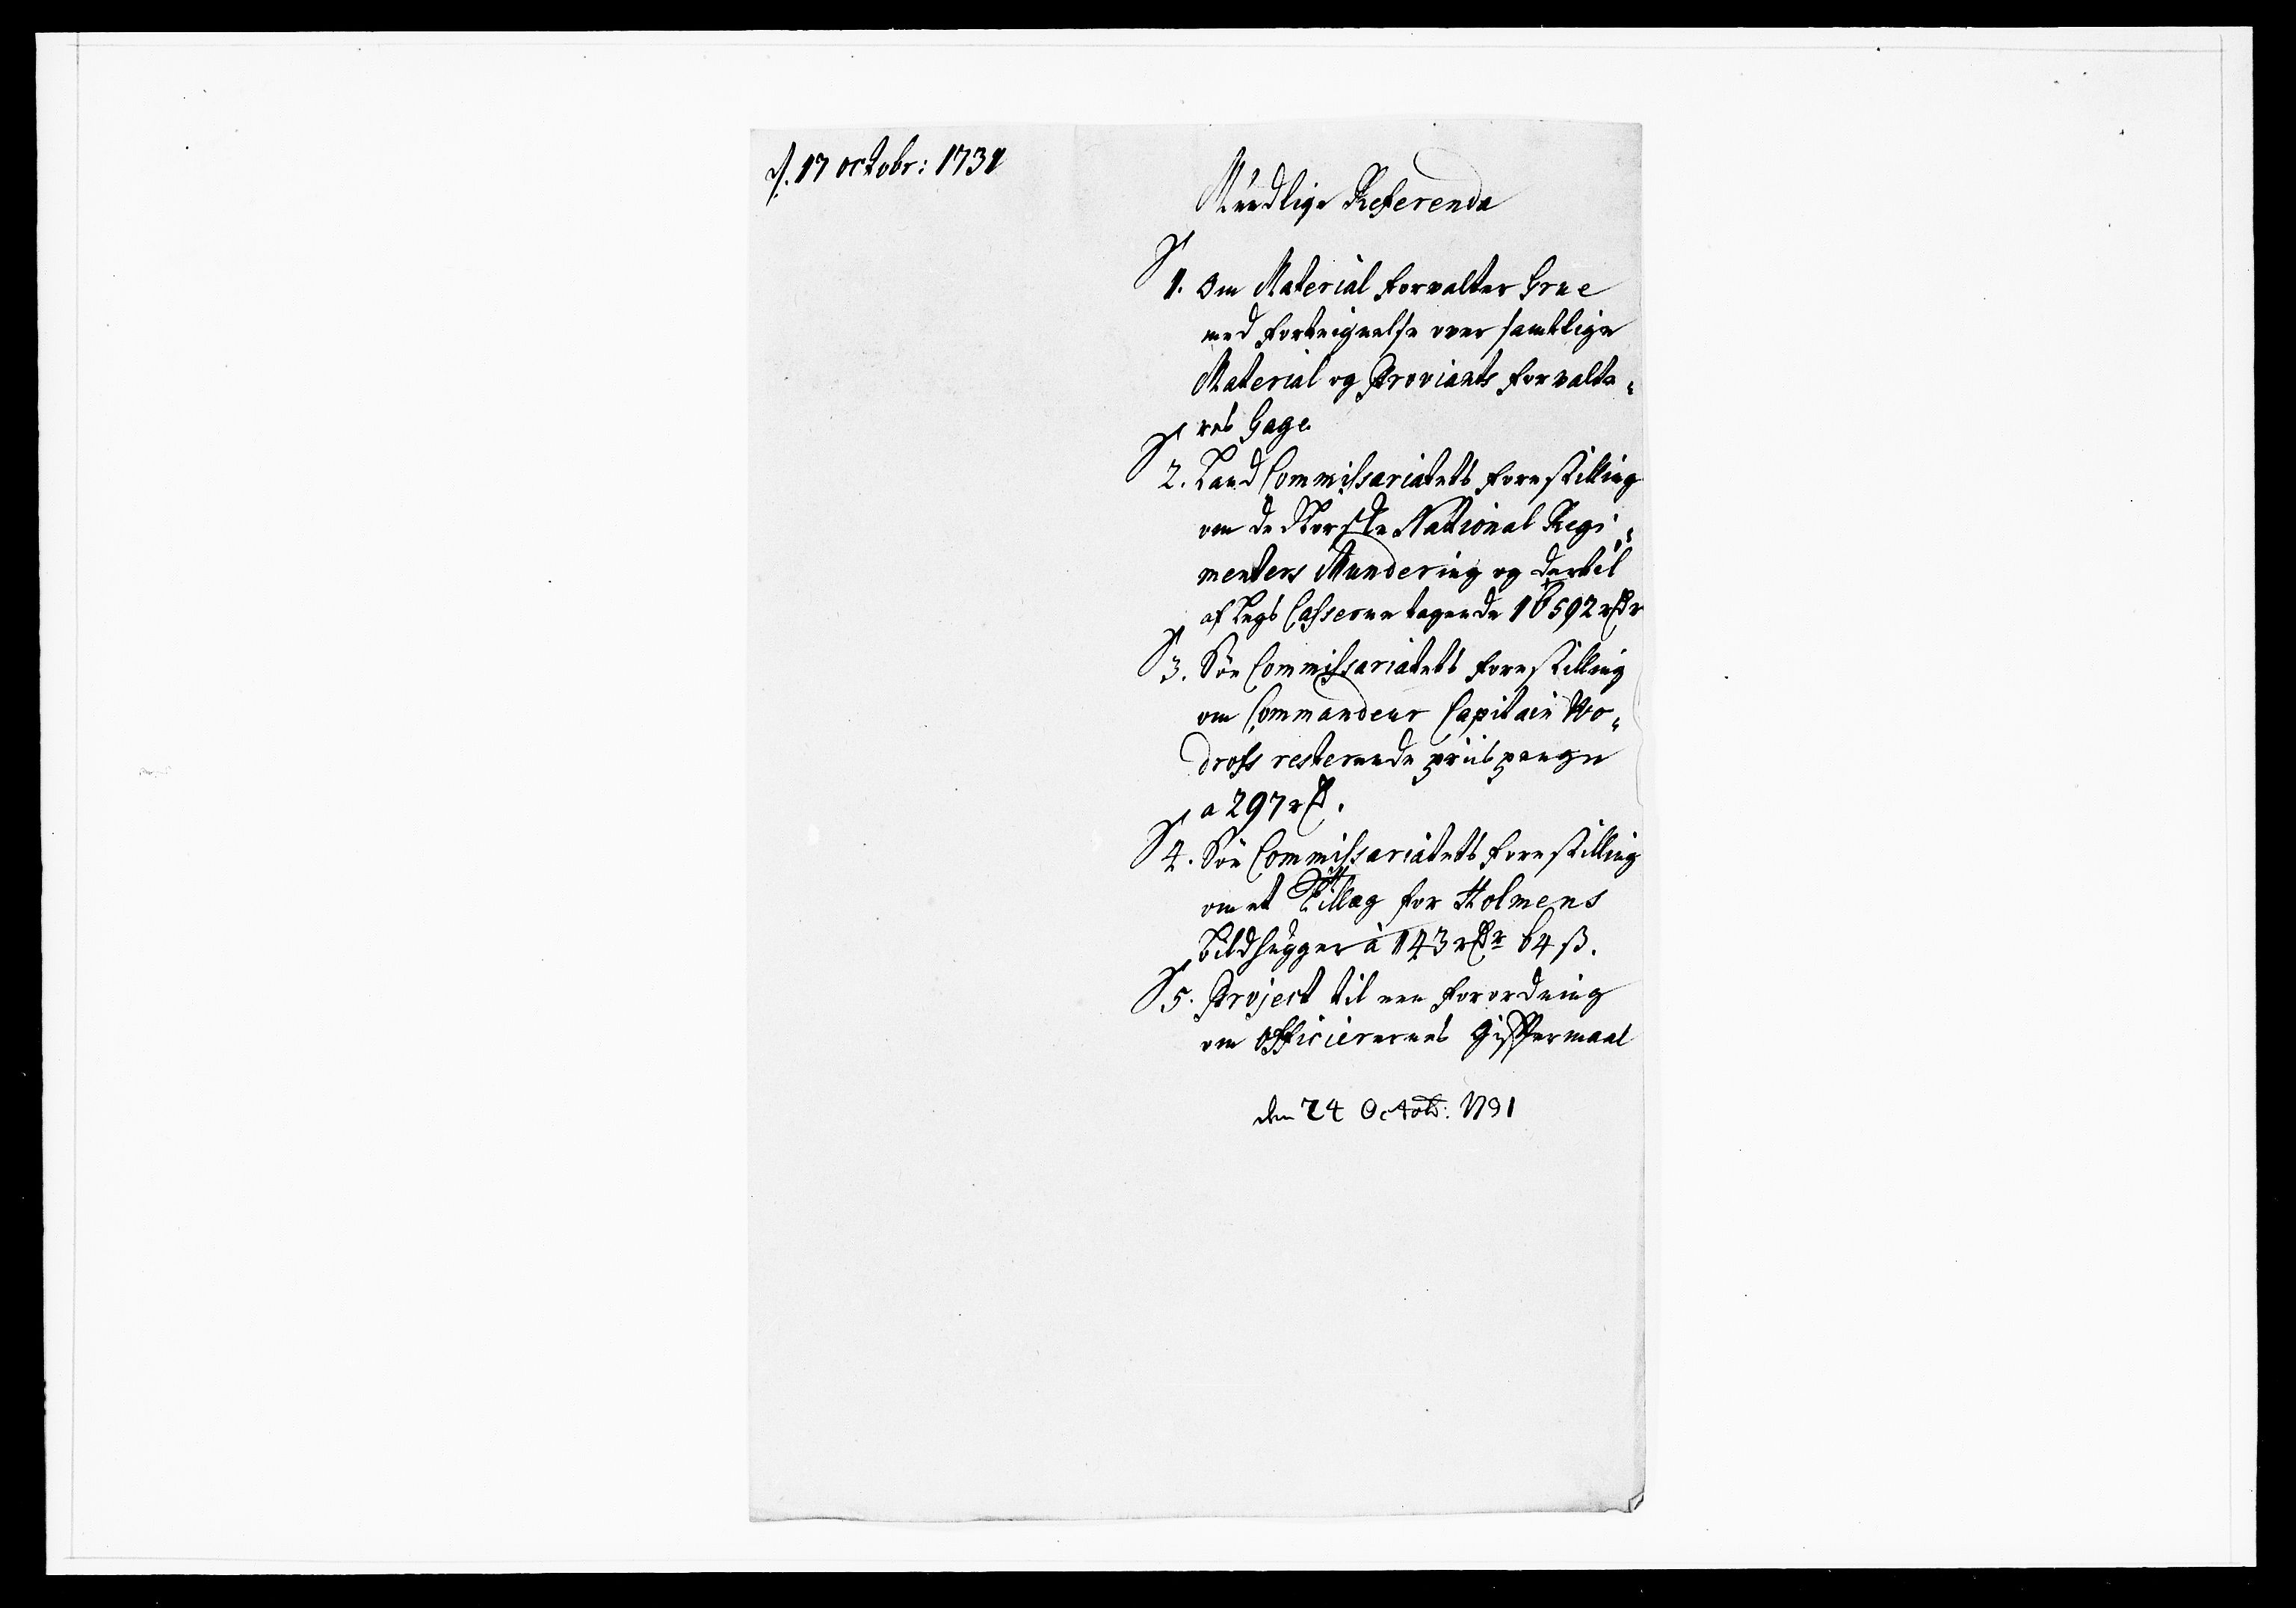 d. 17 octobr: 1731
Mündlige Referenda
1. Om Material forvalter Grue
med forteignelse over samtlige
Material og Proviants forvalte„
res Gage.
2. Land Commissariatets forestilling
om de Norske National Regi„
menters Mundering og dertil
af Legs Casserne tagende 16592 rdr
3. Söe Commissariatets forestilling
om Commandeur Capitain Wo„
drofs resterende priispenge
a 297 rd.
4. Söe Commissariatets forestilling
om et Tillæg for Holmens
Bildhugger à 143 rdr 64 ß.
5. Project til een forordning
om Officierernes Gifftermaal
den 24 Octob: 1731